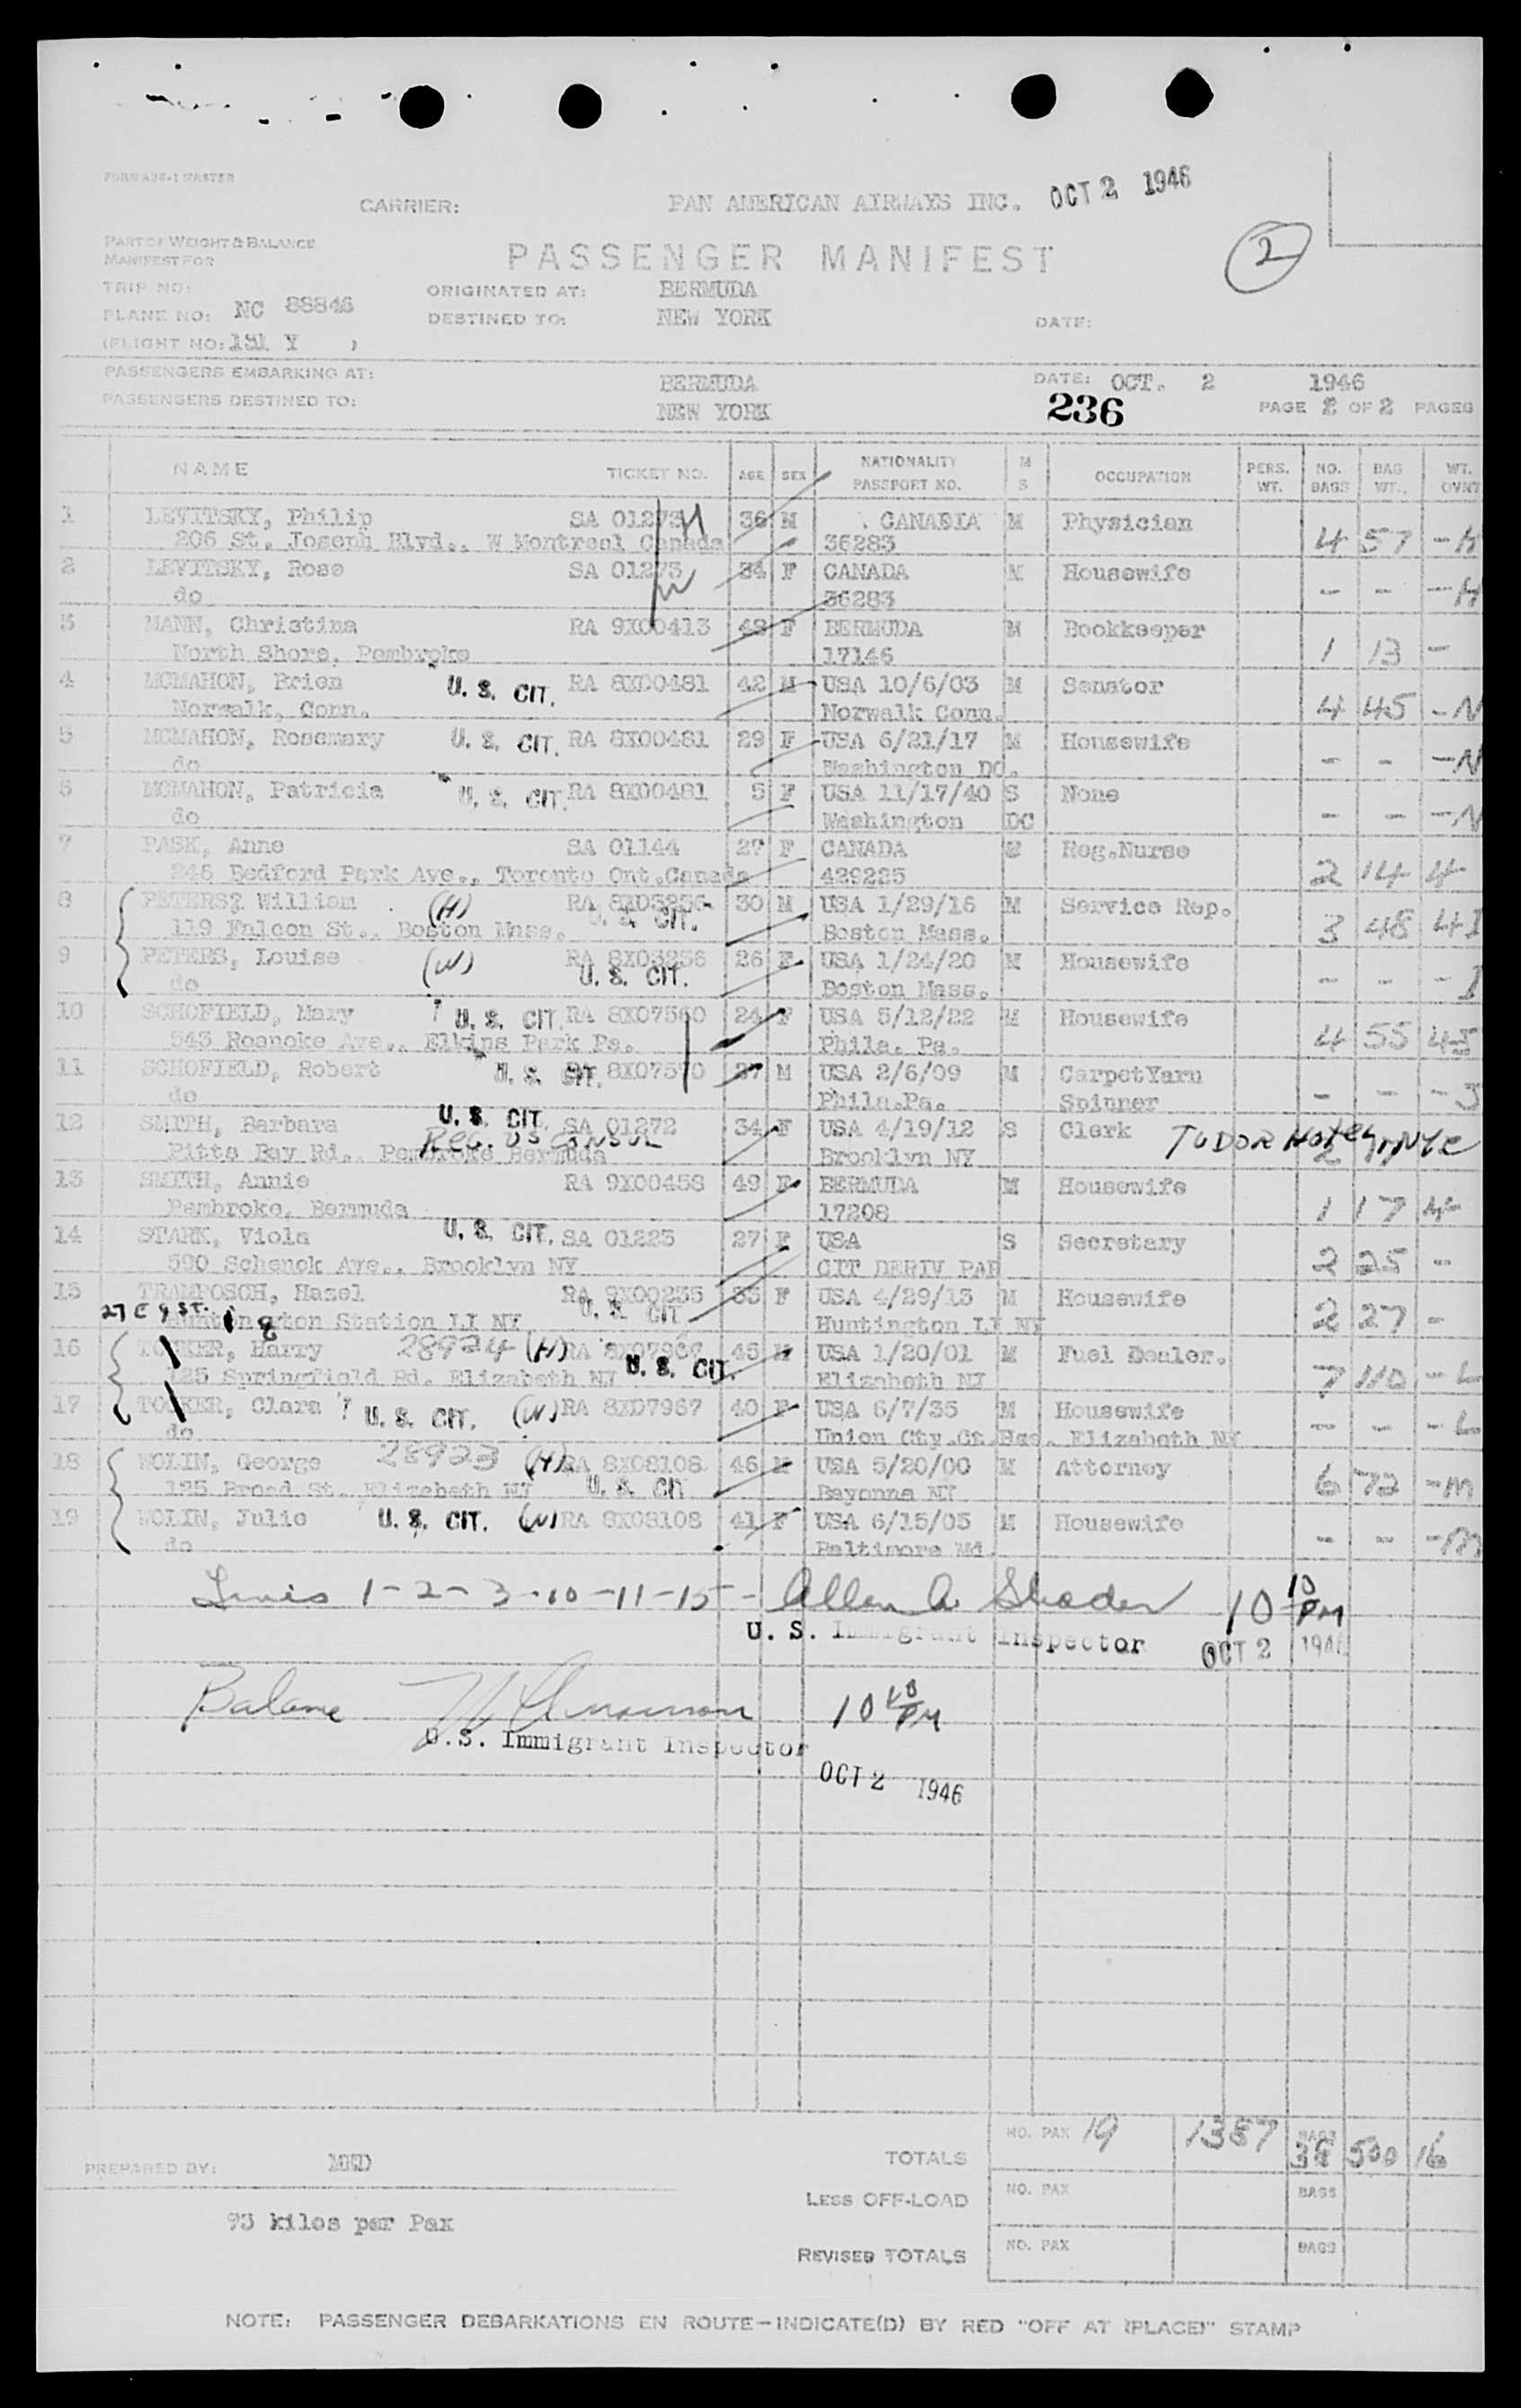 FORM A36-1 MASTER
CARRIER: PAN AMERICAN AIRWAYS INC. OCT 2 1946
PART OF WEIGHT & BALANCE
MANIFEST FOR
PASSENGER MANIFEST 2
TRIP NO:
ORIGINATED AT: BERMUDA
PLANE NO: NC 88846
DESTINED TO: NEW YORK DATE:
(FLIGHT NO: 131 Y )
PASSENGERS EMBARKING AT: BERMUDA DATE: OCT. 2 1946
PASSENGERS DESTINED TO: NEW YORK 236 PAGE 2 OF 2 PAGES
NAME TICKET NO. AGE SEX NATIONALITY PASSPORT NO. M S OCCUPATION PERS. WT. NO. BAGS BAG WT. WT. OVRT
1 LEVITSKY, Philip SA 01273 36 M CANADIA M Physician
206 St. Joseph Blvd., W Montreal Canada 36283 4 57 - H
2 LEVITSKY, Rose SA 01273 34 F CANADA M Housewife
do 36283 - - - H
3 MANN, Christina RA 9X00413 48 F BERMUDA M Bookkeeper
North Shore, Pembroke 17146 1 13 -
4 MCMAHON, Brien U. S. CIT. RA 8X00481 42 M USA 10/6/03 M Senator
Norwalk, Conn. Norwalk Conn. 4 45 - N
5 MCMAHON, Rosemary U. S. CIT. RA 8X00481 29 F USA 6/21/17 M Housewife
do Washington DC. - - - N
6 MCMAHON, Patricia U. S. CIT. RA 8X00481 5 F USA 11/17/40 S None
do Washington DC - - - N
7 PASK, Anne SA 01144 27 F CANADA Reg.Nurse
246 Bedford Park Ave., Toronto Ont.Canada 429225 2 14 4
8 PETERS, William (H) RA 8X03256 30 M USA 1/29/16 M Service Rep.
119 Falcon St., Boston Mass. U. S. CIT. Boston Mass. 3 48 4 I
9 PETERS, Louise (W) RA 8X03256 26 F USA 1/24/20 M Housewife
do U. S. CIT. Boston Mass. - - - I
10 SCHOFIELD, Mary U. S. CIT. RA 8X07560 24 F USA 5/12/22 M Housewife
543 Roanoke Ave., Elkins Park Pa. Phila. Pa. 4 55 4 J
11 SCHOFIELD, Robert U. S. CIT. 8X07570 37 M USA 2/6/09 M CarpetYarn
do Phila.Pa. Spinner - - - J
12 SMITH, Barbara U. S. CIT. SA 01272 34 F USA 4/19/12 S Clerk TUDOR HOTEL, NYC
Pitts Bay Rd., Pembroke Bermuda REG. US CONSUL Brooklyn NY 2
13 SMITH, Annie RA 9X00458 49 F BERMUDA M Housewife
Pembroke, Bermuda 17208 1 17 4
14 STARK, Viola U. S. CIT. SA 01223 27 F USA S Secretary
590 Schenck Ave., Brooklyn NY CIT DERIV PAP 2 25 -
15 TRAMPOSCH, Hazel RA 9X00235 33 F USA 4/29/13 M Housewife
27 E 9 ST. Huntington Station LI NY U. S. CIT Huntington LI NY 2 27 -
16 TOCKER, Harry 28924 (H) RA 8X07967 45 M USA 1/20/01 M Fuel Dealer.
125 Springfield Rd. Elizabeth NJ U. S. CIT. Elizabeth NJ 7 110 - L
17 TOCKER, Clara U. S. CIT. (W) RA 8X07967 40 F USA 6/7/35 M Housewife
do Union Cty.Ct.Hse. Elizabeth NJ - - - L
18 WOLIN, George 28923 (H) RA 8X08108 46 M USA 5/20/00 M Attorney
125 Broad St. Elizabeth NJ U. S. CIT Bayonne NJ 6 72 - M
19 WOLIN, Julie U. S. CIT. (W) RA 8X08108 41 F USA 6/15/05 M Housewife
do Baltimore Md. - - - M
Lines 1-2-3-10-11-15- Allen A. Shader 10 10 PM
U. S. Immigrant Inspector OCT 2 1946
Balance 10 10 PM
U.S. Immigrant Inspector
OCT 2 1946
TOTALS NO. PAX 19 1387 BAGS 38 500 16
PREPARED BY: MED
LESS OFF-LOAD NO. PAX BAGS
93 kilos per Pax
REVISED TOTALS NO. PAX BAGS
NOTE: PASSENGER DEBARKATIONS EN ROUTE—INDICATE(D) BY RED "OFF AT (PLACE)" STAMP